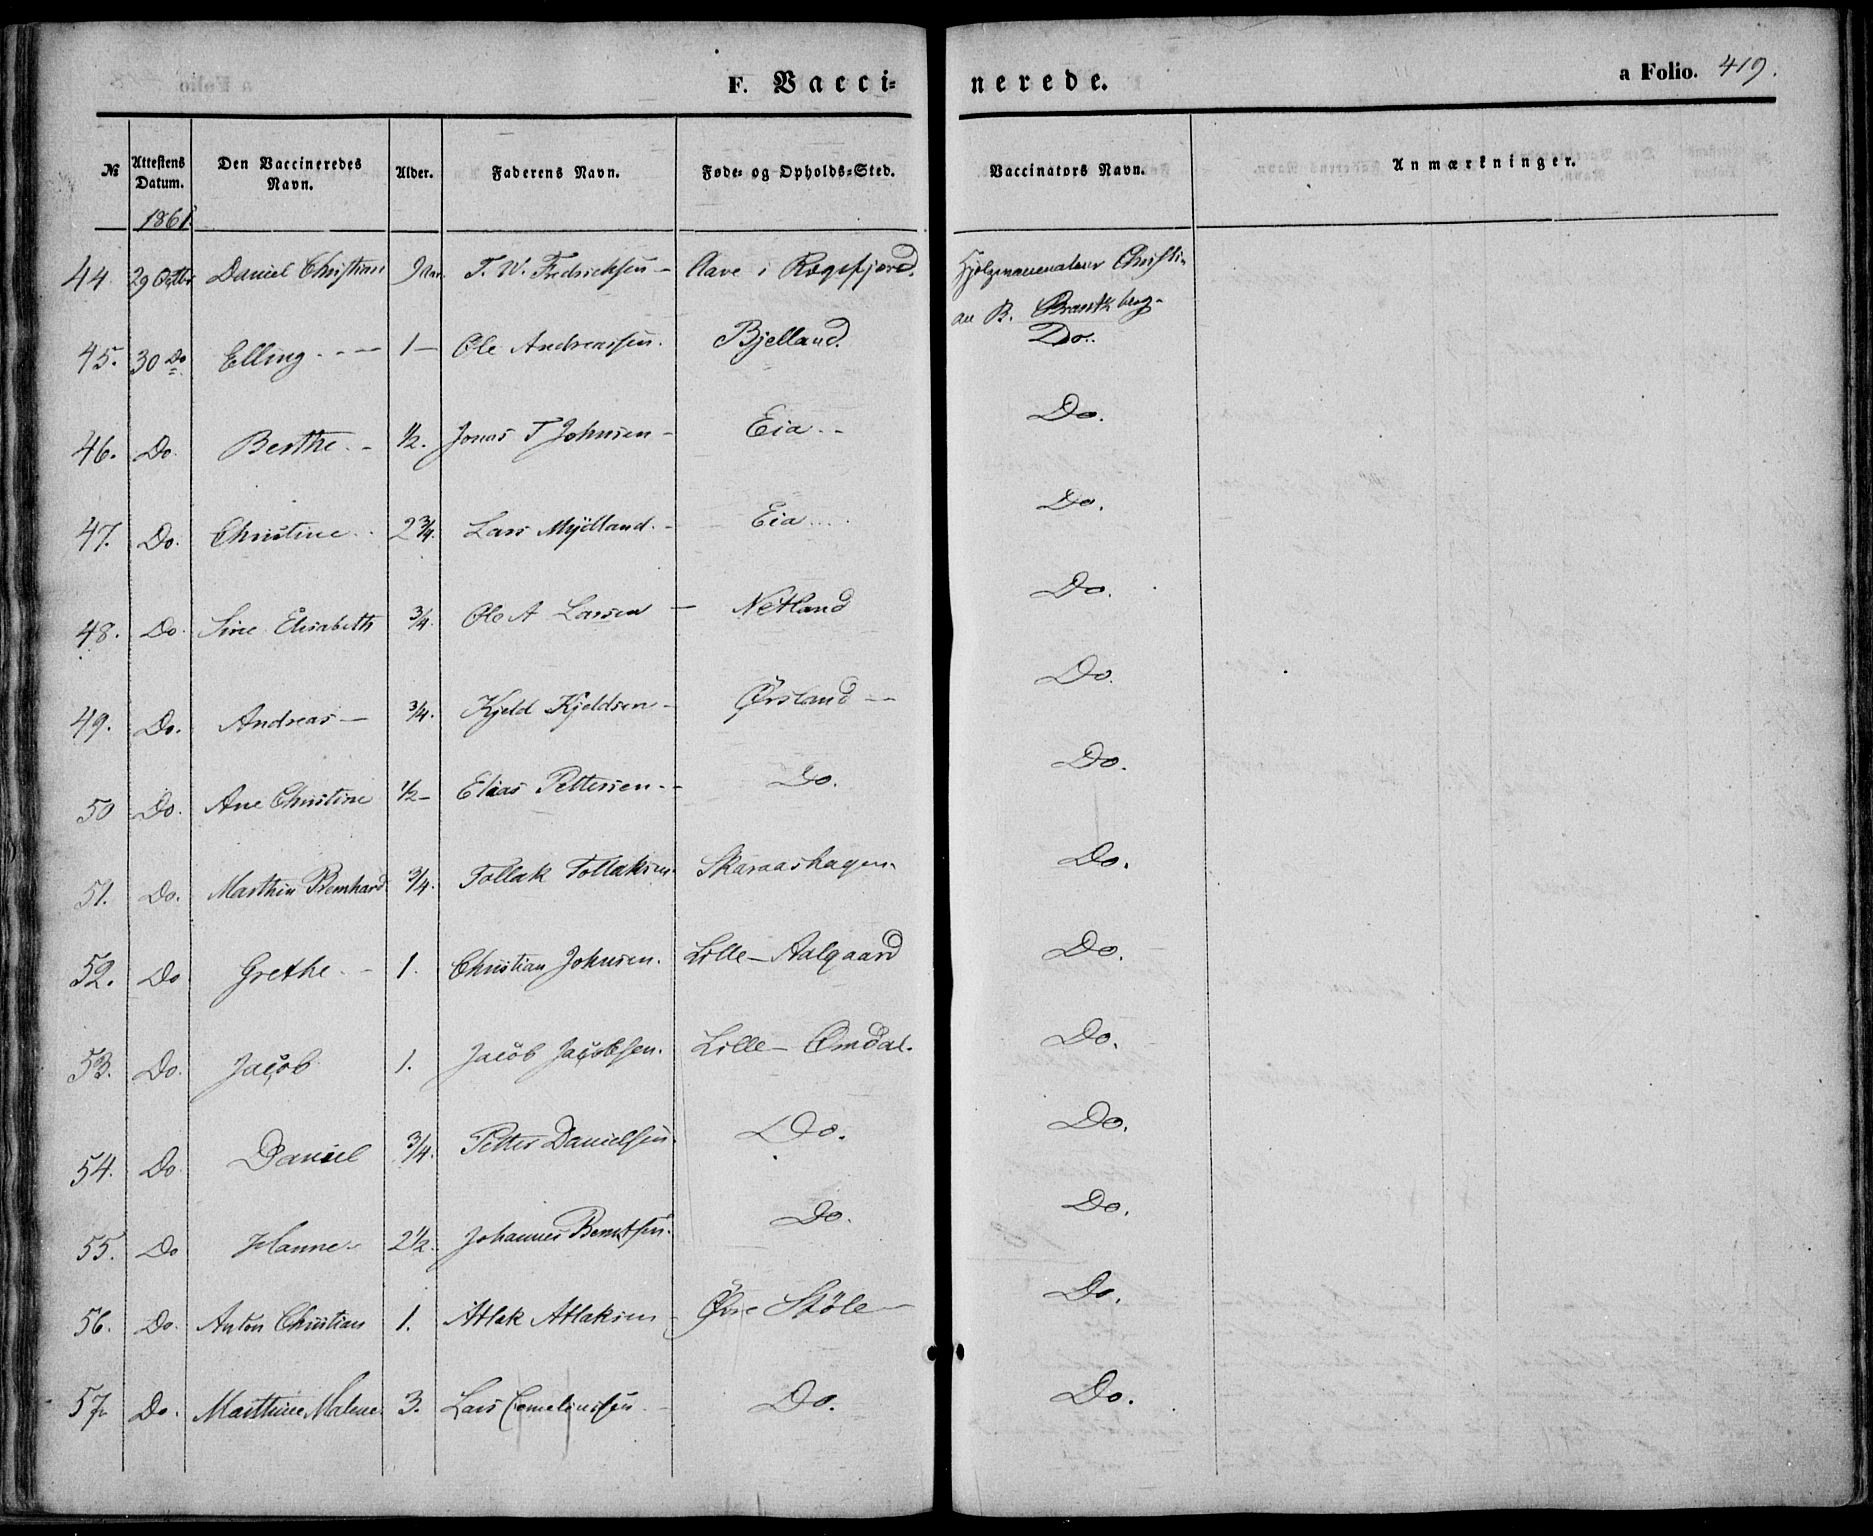 F. Vacci=
nerede.
a Folio. 419.
№ Attestens Datum. Den Vaccineredes Navn. Alder. Faderens Navn. Føde= og Opholds=Sted. Vaccinators Navn. Anmærkninger.
1861.
44. 29 Octbr Daniel Christian 9 Aar T. W. Fredricksen – Aave i Rægefjord. Hjelpevaccinateur Christi-
an B. Brantzberg
45. 30 Do Elling - - - 1 – Ole Andreassen. Bjelland. Do.
46. Do. Berthe. - 1/2. Jonas T Johnsen - Eia - - Do.
47. Do. Christine - - 2 3/4. Lars Mydland. - Eia ... Do.
48. Do. Sire Elisabeth 3/4. Ole A Larsen – Netland Do.
49. Do. Andreas – 3/4. Kjeld Kjeldsen – Ørsland – – Do.
50 Do. Ane Christine 1/2 – Elias Pettersen - - Do. Do.
51. Do. Marthin Bernhard 3/4. Tollak Tollaksen. Skaraashagen Do.
52. Do Grethe. - 1. Christian Johnsen. Lille – Aalgaard Do.
53. Do. Jacob 1. Jacob Jacobsen. Lille – Omdal. Do.
54. Do Daniel 3/4. Petter Danielsen. Do. Do.
55. Do Hanne. 2 1/2. Johannes Berntsen. Do. Do.
56. Do. Anton Christian 1. Atlak Atlaksen Øvre Støle – Do.
57. Do. Marthine Malene. 3. Lars Corneliussen – Do. Do.